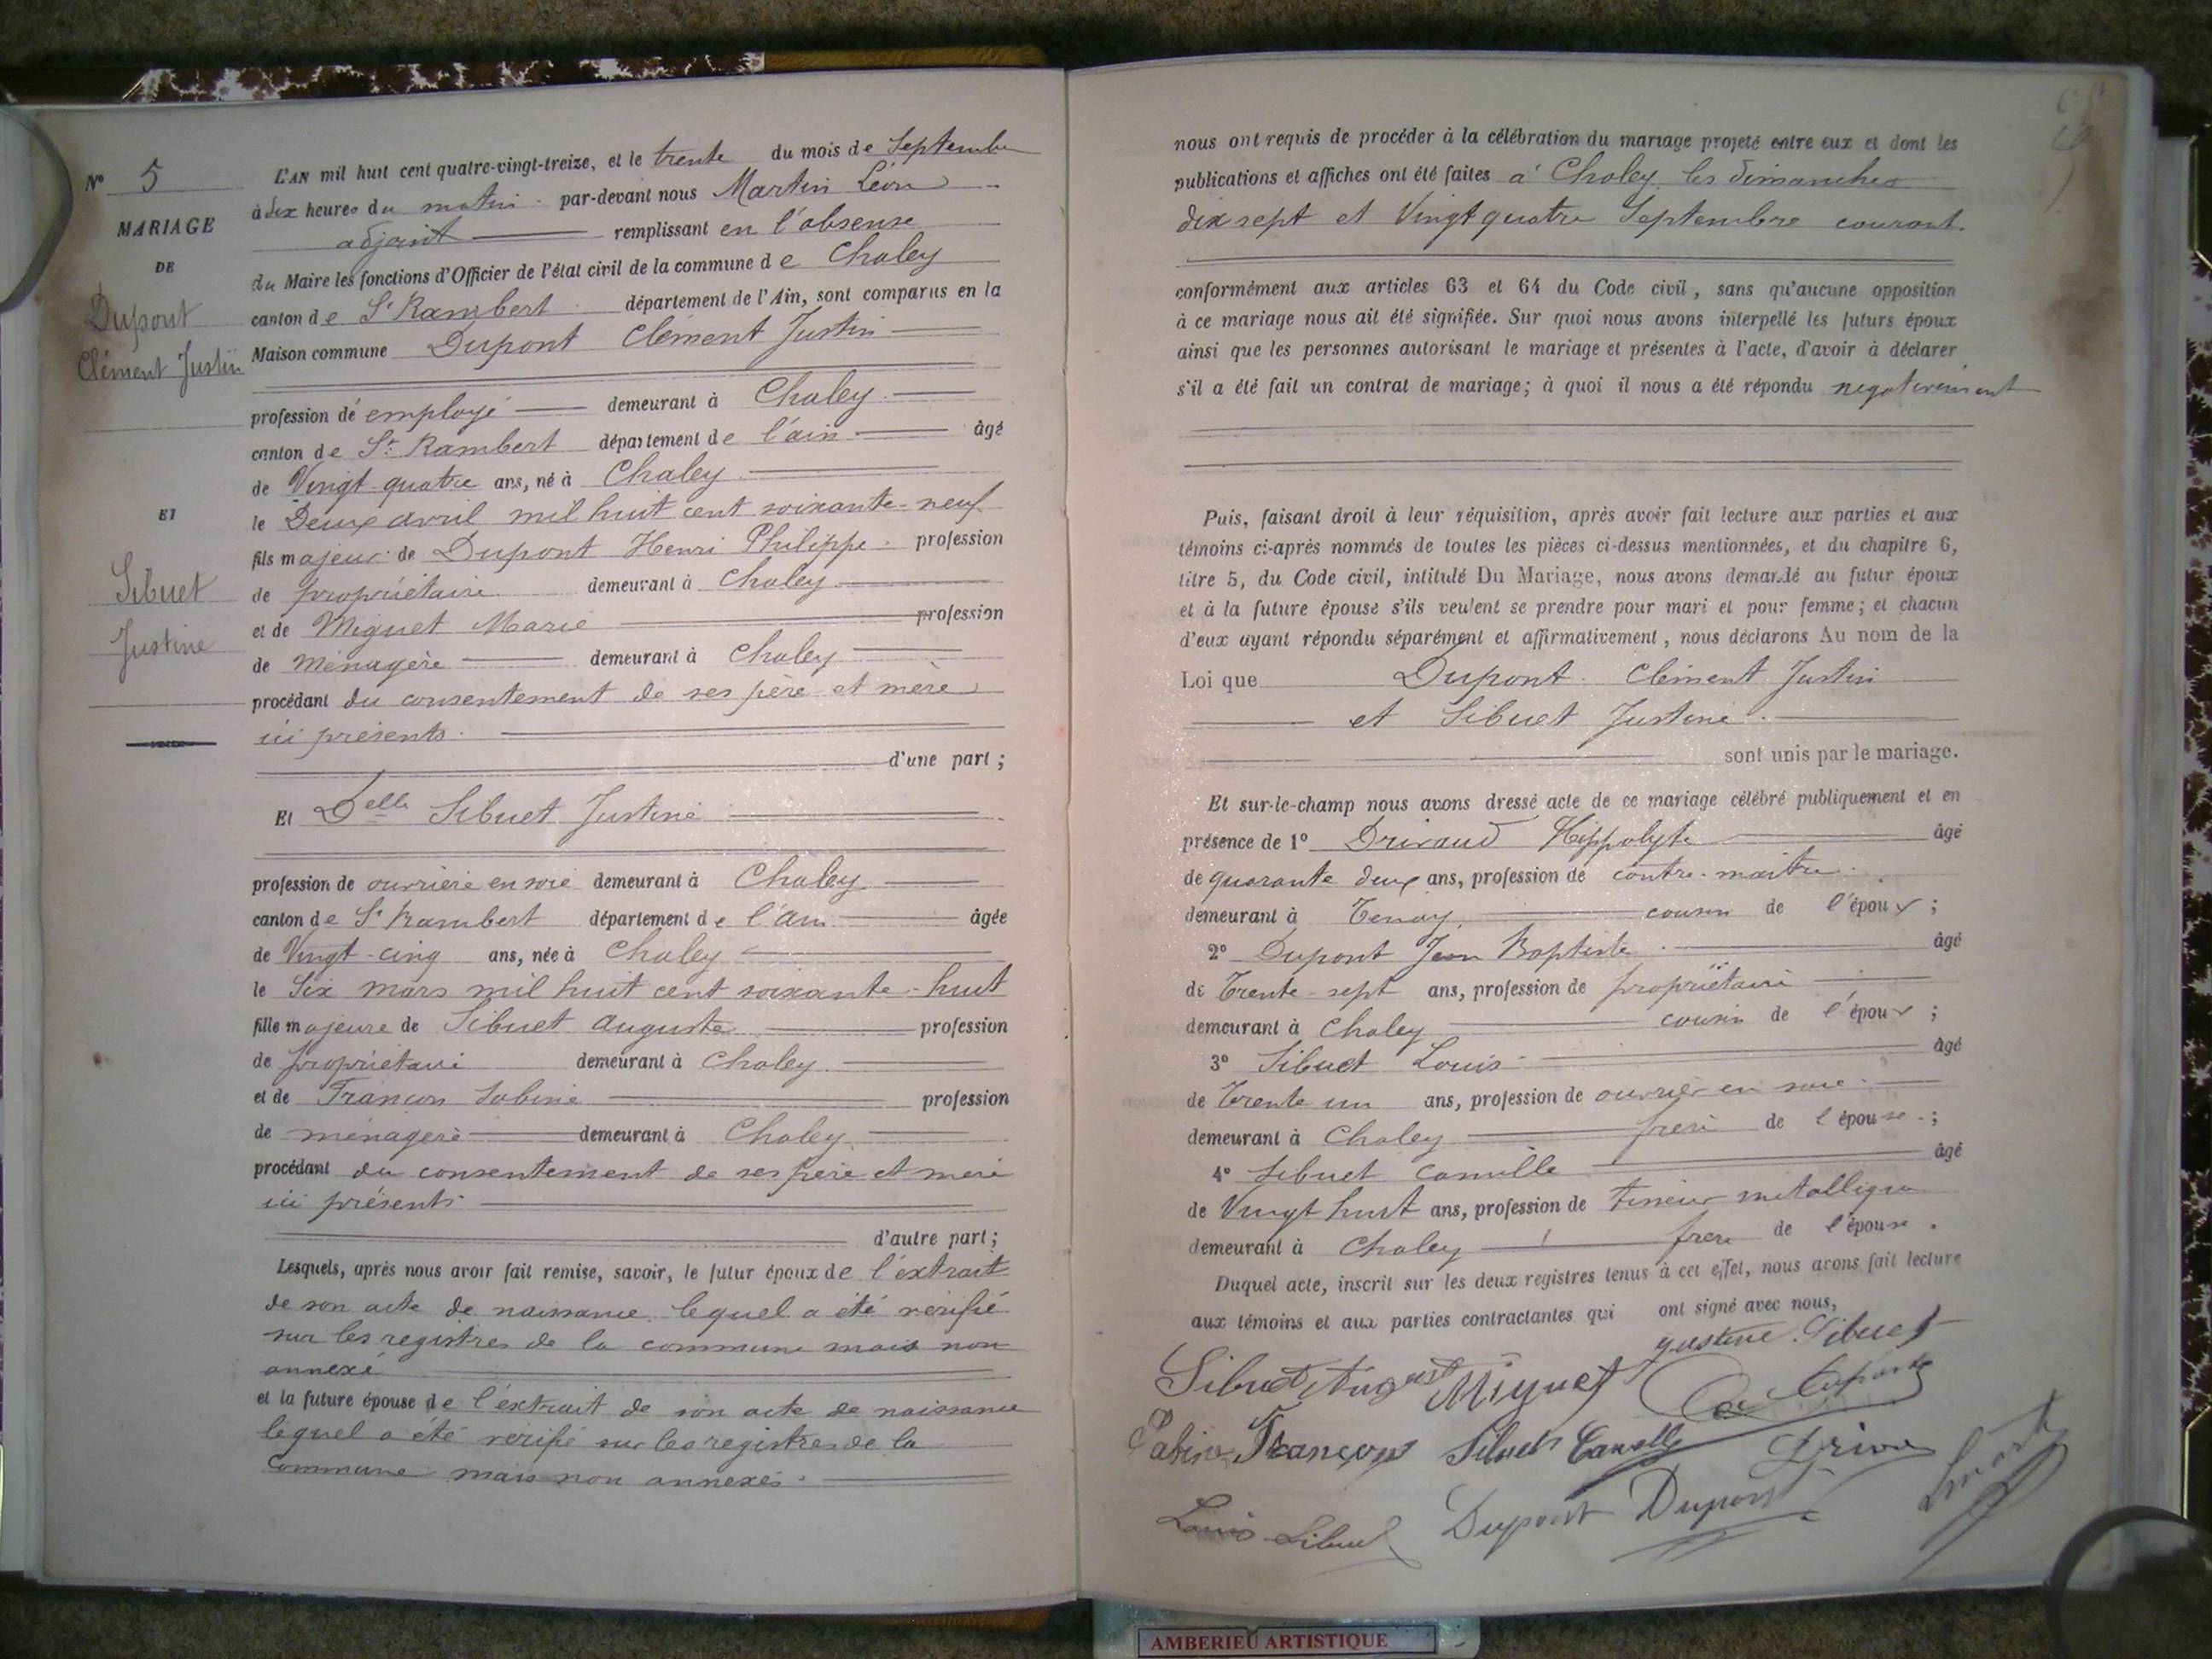 N° 5
MARIAGE
DE
Dupont
Clément Justin
ET
Sibuet
Justine
L'AN mil huit cent quatre-vingt-treize, et le trente du mois de Septembre
à dix heures du matin par-devant nous Martin Léon
adjoint remplissant en l'absense
du Maire les fonctions d'Officier de l'état civil de la commune de Chaley
canton de St Rambert département de l'Ain, sont comparus en la
Maison commune Dupont Clément Justin
profession de employé demeurant à Chaley
canton de St Rambert département de l'ain âgé
de Vingt quatre ans, né à Chaley
le Deux avril mil huit cent soixante-neuf
fils majeur de Dupont Henri Philippe profession
de propriétaire demeurant à Chaley
et de Miguet Marie profession
de ménagère demeurant à Chaley
procédant du consentement de ses père et mère
ici présents
d'une part ;
Et Delle Sibuet Justine
profession de ouvrière en soie demeurant à Chaley
canton de St Rambert département de l'ain âgée
de Vingt-cinq ans, née à Chaley
le Six mars mil huit cent soixante-huit
fille majeure de Sibuet Auguste profession
de propriétaire demeurant à Chaley
et de Françon Sabine profession
de ménagère demeurant à Chaley
procédant du consentement de ses père et mère
ici présents
d'autre part ;
Lesquels, après nous avoir fait remise, savoir, le futur époux de l'extrait
de son acte de naissance lequel a été vérifié
sur les registres de la commune mais non
annexé
et la future épouse de l'extrait de son acte de naissance
lequel a été vérifié sur les registres de la
commune mais non annexés.
nous ont requis de procéder à la célébration du mariage projeté entre eux et dont les
publications et affiches ont été faites à Chaley les dimanches
dix sept et Vingt quatre Septembre courant.
conformément aux articles 63 et 64 du Code civil, sans qu'aucune opposition
à ce mariage nous ait été signifiée. Sur quoi nous avons interpellé les futurs époux
ainsi que les personnes autorisant le mariage et présentes à l'acte, d'avoir à déclarer
s'il a été fait un contrat de mariage; à quoi il nous a été répondu negativement
Puis, faisant droit à leur réquisition, après avoir fait lecture aux parties et aux
témoins ci-après nommés de toutes les pièces ci-dessus mentionnées, et du chapitre 6,
titre 5, du Code civil, intitulé Du Mariage, nous avons demandé au futur époux
et à la future épouse s'ils veulent se prendre pour mari et pour femme; et chacun
d'eux ayant répondu séparément et affirmativement, nous déclarons Au nom de la
Loi que Dupont Clément Justin
et Sibuet Justine
sont unis par le mariage.
Et sur-le-champ nous avons dressé acte de ce mariage célébré publiquement et en
présence de 1° Drivaud Hippolyte âgé
de quarante deux ans, profession de contre-maître
demeurant à Tenay cousin de l'époux ;
2° Dupont Jean Baptiste âgé
de Trente-sept ans, profession de propriétaire
demeurant à Chaley cousin de l'époux ;
3° Sibuet Louis âgé
de Trente un ans, profession de ouvrier en soie
demeurant à Chaley frère de l'épouse ;
4° Sibuet Camille âgé
de Vingt huit ans, profession de Tisseur métallique
demeurant à Chaley frère de l'épouse .
Duquel acte, inscrit sur les deux registres tenus à cet effet, nous avons fait lecture
aux témoins et aux parties contractantes qui ont signé avec nous,
Justine Sibuet
Sibuet August Miguet Dupont
Sabine Françon Sibuet Camille
Louis Sibuet Dupont Dupont
AMBERIEU ARTISTIQUE